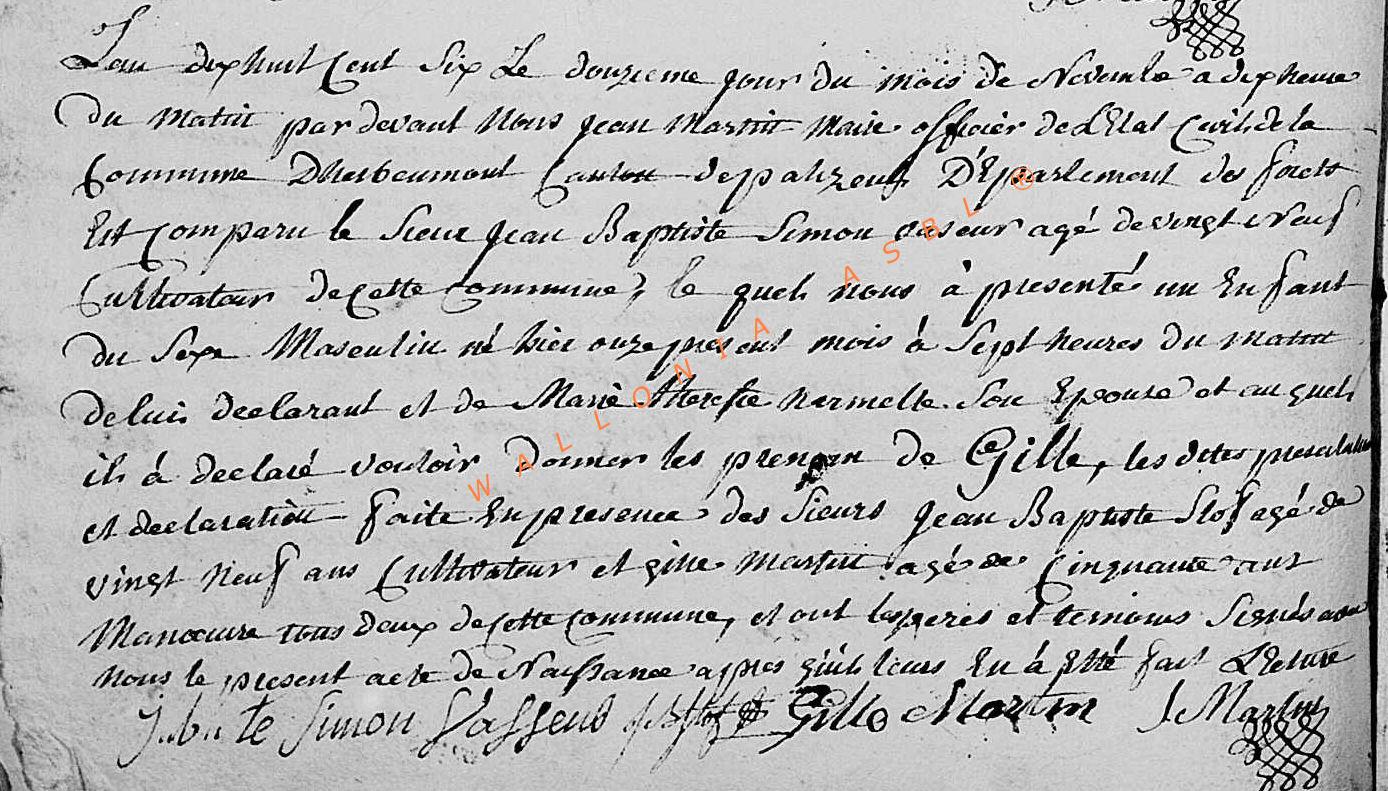 L'an dix huit Cent Six Le douzieme jour du mois de Novembre a dix heure
du matin par devant Nous jean Martin Maire officier de L'Etat Civil de la
Commune D'herbeumont Canton de palizeul D'Epartement des forets
Est Comparu le Sieur jean Baptiste Simon vaseur agé de vingt Neuf
Cultivateur de Cette Commune, le quel nous à presenté un Enfant
du Sexe Masculin né hier onze present mois à Sept heures du matin
de lui declarant et de Marie Theresse hermelle Son Epouse et au quel
il à declaré vouloir Donner les prenom de Gille, les dites presentation
et declaration faite En presence des Sieurs jean Baptiste Slof agé de
vingt Neuf ans Cultivateur et gille Martin agé de Cinquante ans
Manoeuvre tous deux de Cette Commune, et ont les peres et temoins Signés avec
nous le present acte de Naissance apres qu'il leurs En à Eté fait LEcture
J. b. te Simon Vasseur Gille Martin J Martin
WALLONIA ASBL ®